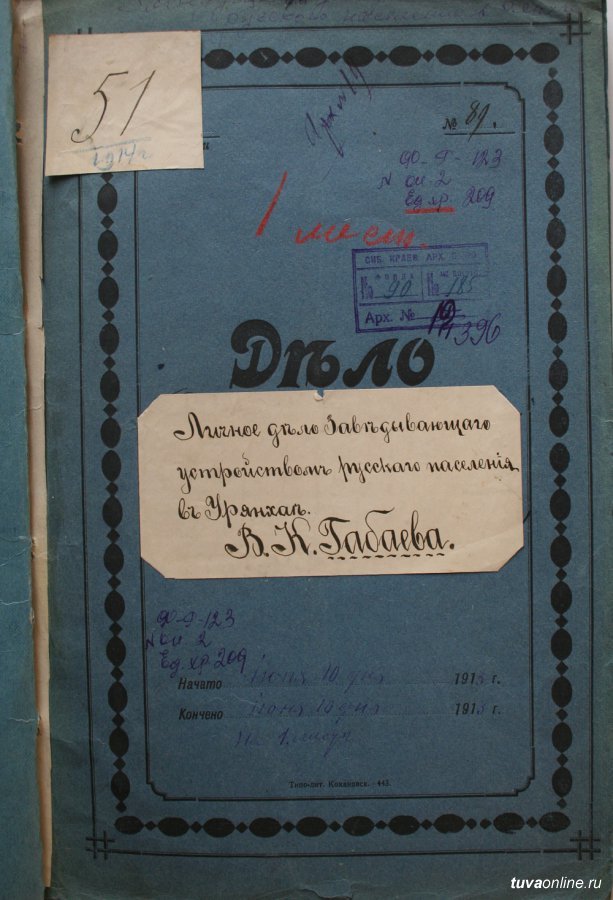 51
1914 г
№ 81.
ф-Р-123
№ оп-2
Ед хр. 209
1 мест.
СИБ. КРАЕВ. АРХ.
ФОНД
№ 90 № 185
Арх. №
396
Дѣло
Личное дѣло Завѣдывающаго
устройствомъ русскаго населенія
въ Урянхаѣ.
В. К. Габаева.
ф-Р-123
№ оп. 2
Ед. хр. 209
Начато Июня 10 дня 1913 г.
Кончено Июня 10 дня 1913 г.
На листѣ
Типо-лит. Кохановск.—443.
tuvaonline.ru